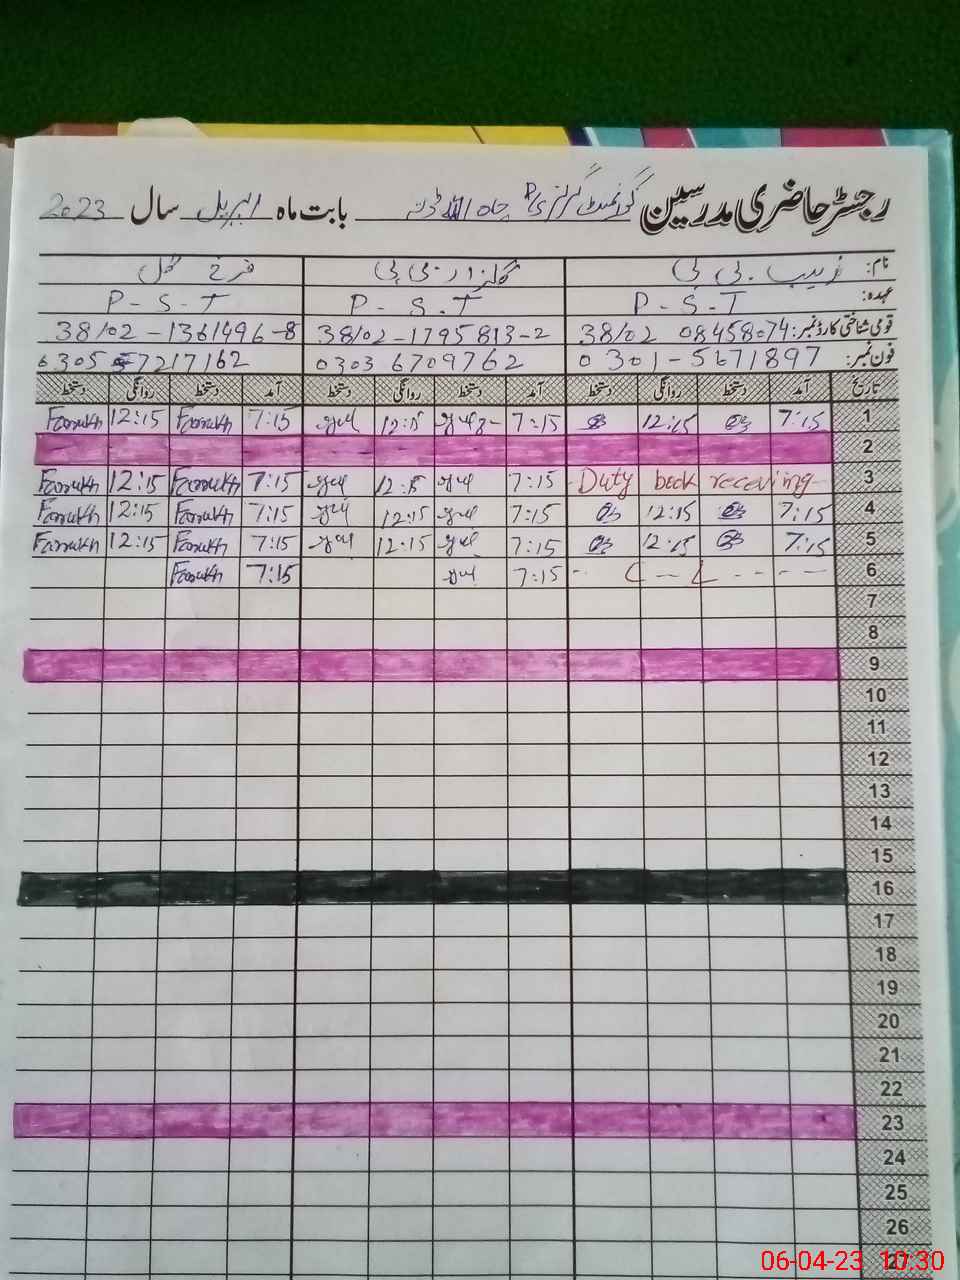 رجسٹر حاضری مدرسین گورنمنٹ گرلز P/S چاہ بابت ماہ اپریل سال 2023
نام: زینب بی بی گلزار بی بی فرخ گل
عہدہ: P-S-T P-S-T P-S-T
قومی شناختی کارڈ نمبر: 38102 08458074 38102-1795813-2 38102-1361496-8
فون نمبر: 0301-5671897 0303 6709762 0305 7217162
تاریخ آمد دستخط روانگی دستخط آمد دستخط روانگی دستخط آمد دستخط روانگی دستخط
1 7:15 12:15 7:15 گل 12:15 گل 7:15 Farrukh 12:15 Farrukh
2
3 Duty beck receiving 7:15 گل 12:15 گل 7:15 Farrukh 12:15 Farrukh
4 7:15 12:15 7:15 گل 12:15 گل 7:15 Farrukh 12:15 Farrukh
5 7:15 12:15 7:15 گل 12:15 گل 7:15 Farrukh 12:15 Farrukh
6 C--L---- 7:15 گل 7:15 Farrukh
7
8
9
10
11
12
13
14
15
16
17
18
19
20
21
22
23
24
25
26
27
06-04-23 10:30